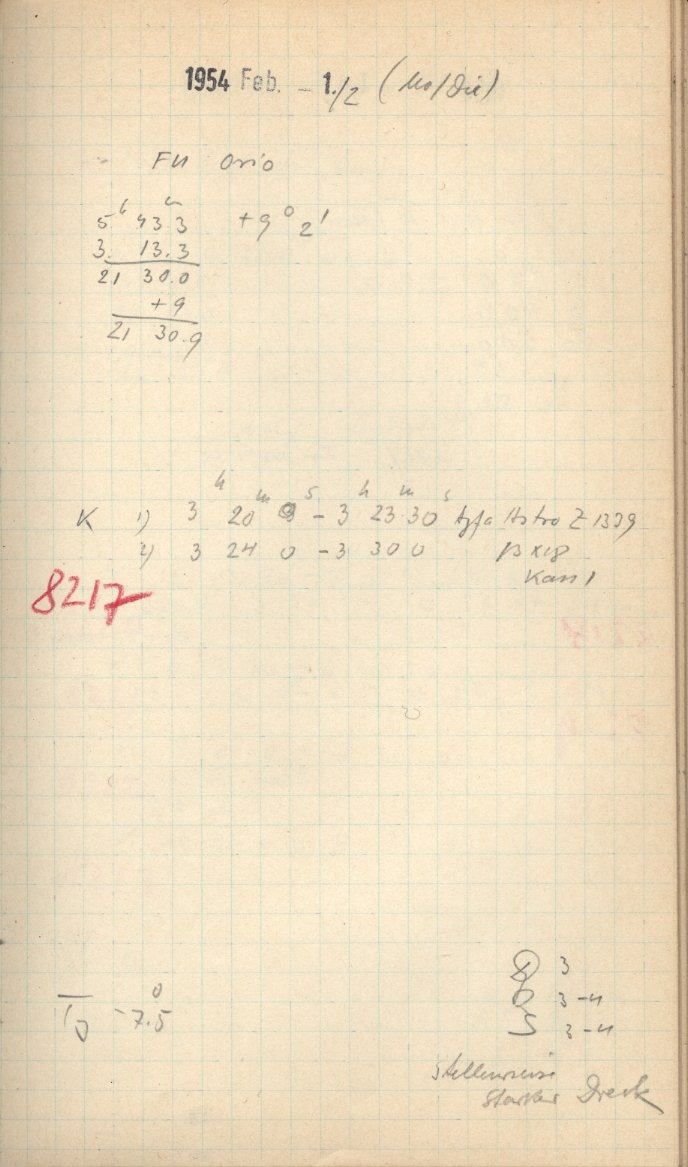 1954 Feb. – 1./2 (Mo/Die)
FU Orio
5ʰ 43ᵐ.3 +9° 2'
3. 13.3
21 30.0
+9
21 30.9
K 1) 3ʰ 20ᵐ 0ˢ – 3ʰ 23ᵐ 30ˢ Agfa Astro Z 1339
2) 3 24 0 – 3 30 0
Kass 1
8217
– 7.5°
3
3-4
S 3-4
Stellenweise
starker Dreck